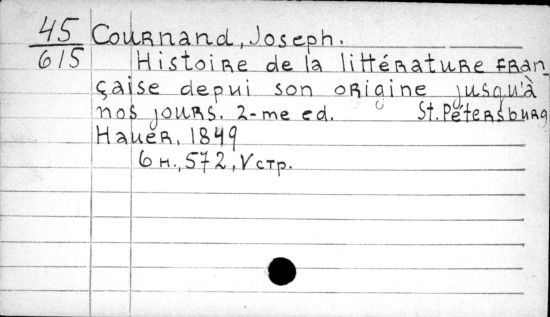 45 Cournand, Joseph.
615 Histoire de la littérature fran_
çaise depui son origine jusqu'à
nos jours. 2-me ed. St. Petersburg
Hauer, 1849
6 н., 572, V стр.